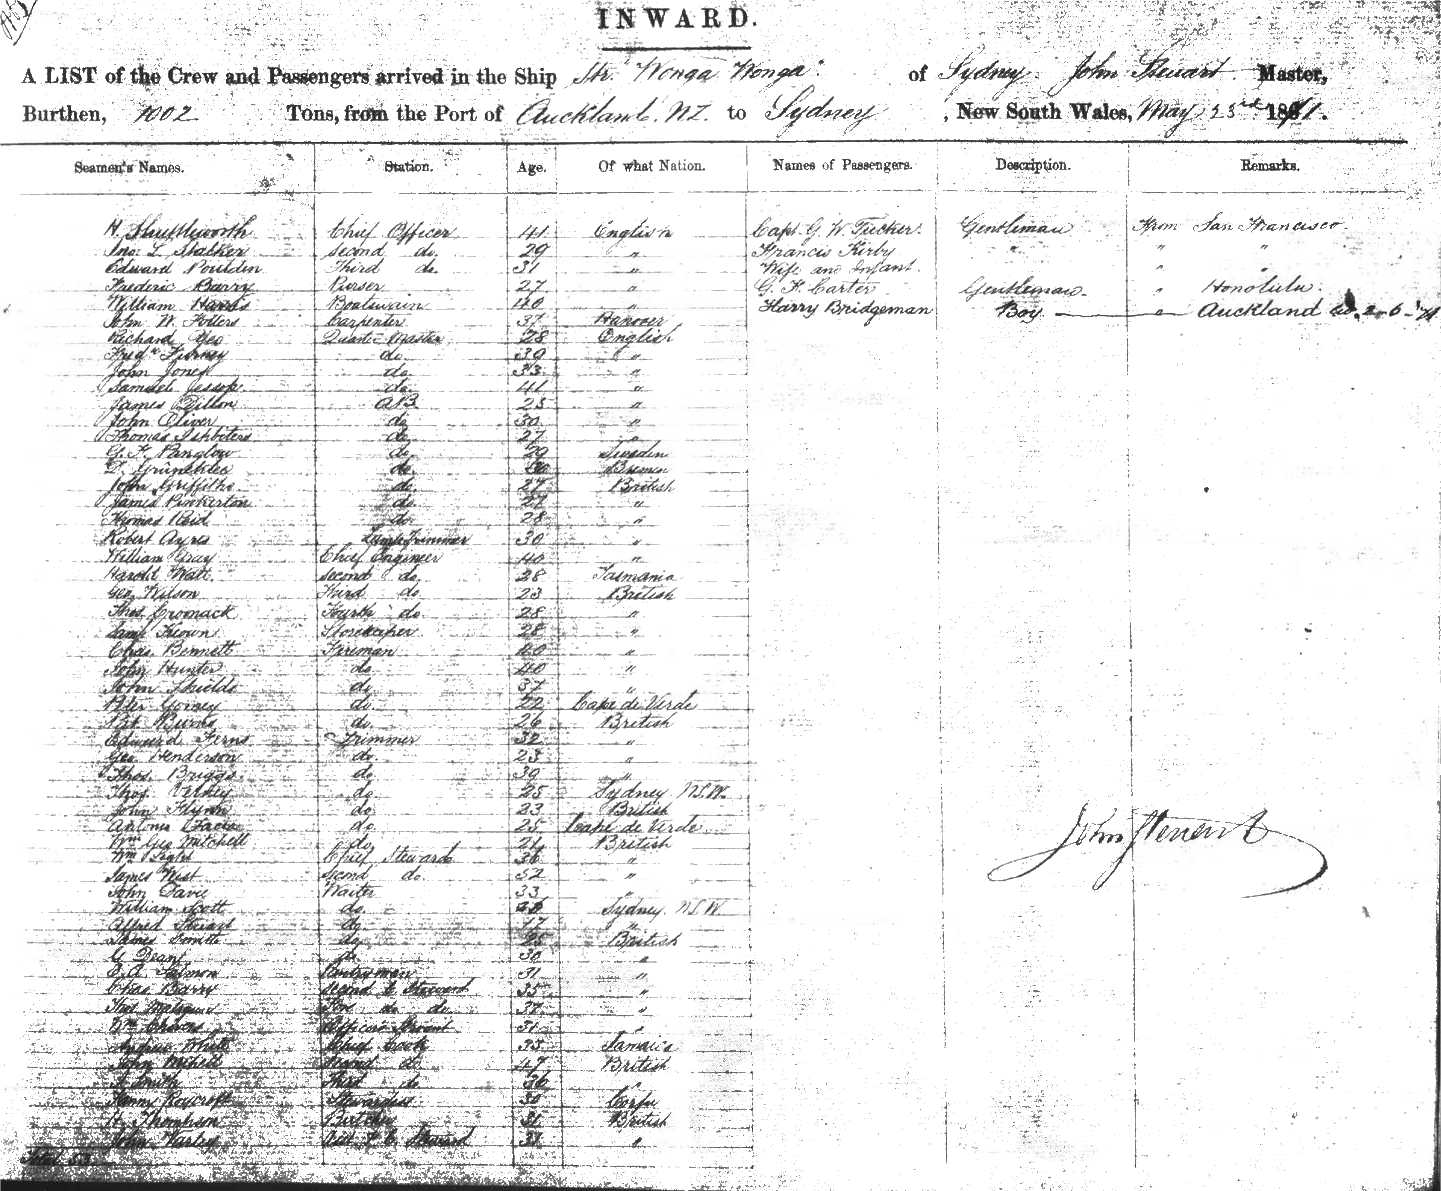 INWARD.
A LIST of the Crew and Passengers arrived in the Ship Str. "Wonga Wonga" of Sydney. John Stewart. Master,
Burthen, 1002 Tons, from the Port of Auckland. NZ. to Sydney, New South Wales, May 23rd 1871.
Seamen's Names. Station. Age. Of what Nation. Names of Passengers. Description. Remarks.
H. Shuttleworth Chief Officer 41 English Capt. G. W. Tucker. Gentleman From San Francisco.
Jno. L. Stalker Second do. 29 " Francis Kirby " " "
Edward Poulden Third do. 31 " Wife and Infant. " "
Frederic Barry Purser 27 " G. F. Carter Gentleman " Honolulu.
William Harris Boatswain 40 " Harry Bridgeman Boy " Auckland
John W. Folers Carpenter 37 Hanover
Richard Geo Quarter Master 28 English
Fredk. Furney do. 39 "
John Jones do. 33 "
Samuel Jessop do. 41 "
James Dillon AB 25 "
John Oliver do. 30 "
Thomas do. 27 "
G. F. Panglow do. 29 Sweden
D. do. Bremen
John Griffiths do. 27 British
James Pinkerton do. 27 "
Thomas Reid do. 28 "
Robert Ayres Lamp Trimmer 30 "
William Gray Chief Engineer 40 "
Harold Watt. Second do. 28 Tasmania
Geo. Wilson Third do. 23 British
Thos. Cromack Fourth do. 28 "
Saml. Keown Storekeeper 28 "
Chas. Bennett Fireman 40 "
John Hunter do. 40 "
John Shields do. 37 "
Peter Gomey do. 22 Cape de Verde
Pat. Burns do. 26 British
Edward Ferns Trimmer 32 "
Geo. Henderson do. 23 "
Thos. Briggs do. 39 "
Thos. do. 25 Sydney N.S.W.
John Flynn do. 23 British
Antonio do. 25 Cape de Verde
Wm. Geo Mitchell do. 21 British
Wm. Chief Steward 36 "
James West Second do. 52 "
John Davie Waiter 33 "
William Scott do. Sydney. N.S.W.
Alfred Stewart do. 17 "
James Smith do. 25 British
G. Deane do. 30 "
C. A. Salmon Pantryman 31 "
Chas Barry Second C. Steward 35 "
do. do. 37 "
Wm. Officers Servant 31 "
Andrew White Chief Cook 33 Jamaica
John Mitchell Second do. 47 British
Smith Third do. 36 "
Fanny Roycroft Stewardess 30 Corfu
H. Thompson Butcher 31 British
John Varley Steward 31 "
Total 53
John Stewart